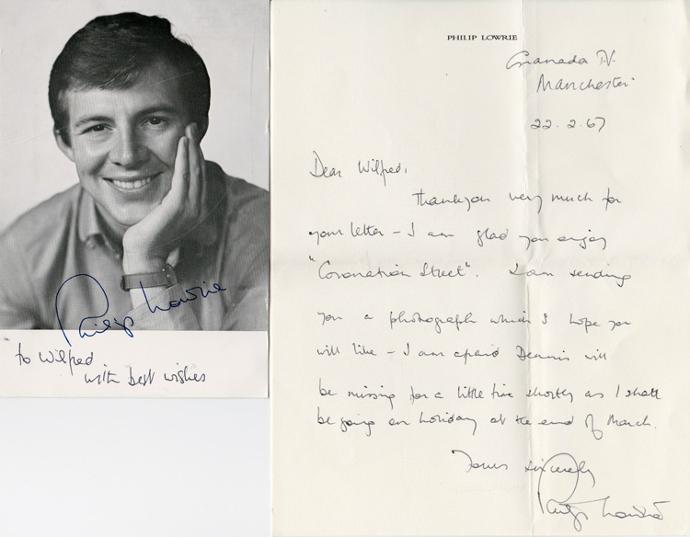 Philip Lowrie
to Wilfred
with best wishes
PHILIP LOWRIE
Granada TV.
Manchester
22.2.67
Dear Wilfred,
Thankyou very much for
your letter – I am glad you enjoy
"Coronation Street". I am sending
you a photograph which I hope you
will like – I am afraid Dennis will
be missing for a little time shortly as I shall
be going on holiday at the end of March.
Yours sincerely
Philip Lowrie